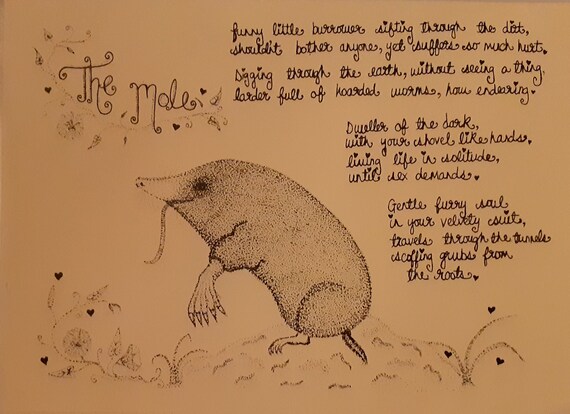 The Mole.
funny little burrower sifting through the dirt,
shouldnt bother anyone, yet suffers so much hurt.
Digging through the earth, without seeing a thing,
larder full of hoarded worms, how endearing.
Dweller of the dark,
with your shovel like hands.
living life in solitude,
until sex demands.
Gentle furry soul
in your velvety suit,
travels through the tunnels
scoffing grubs from
the roots.